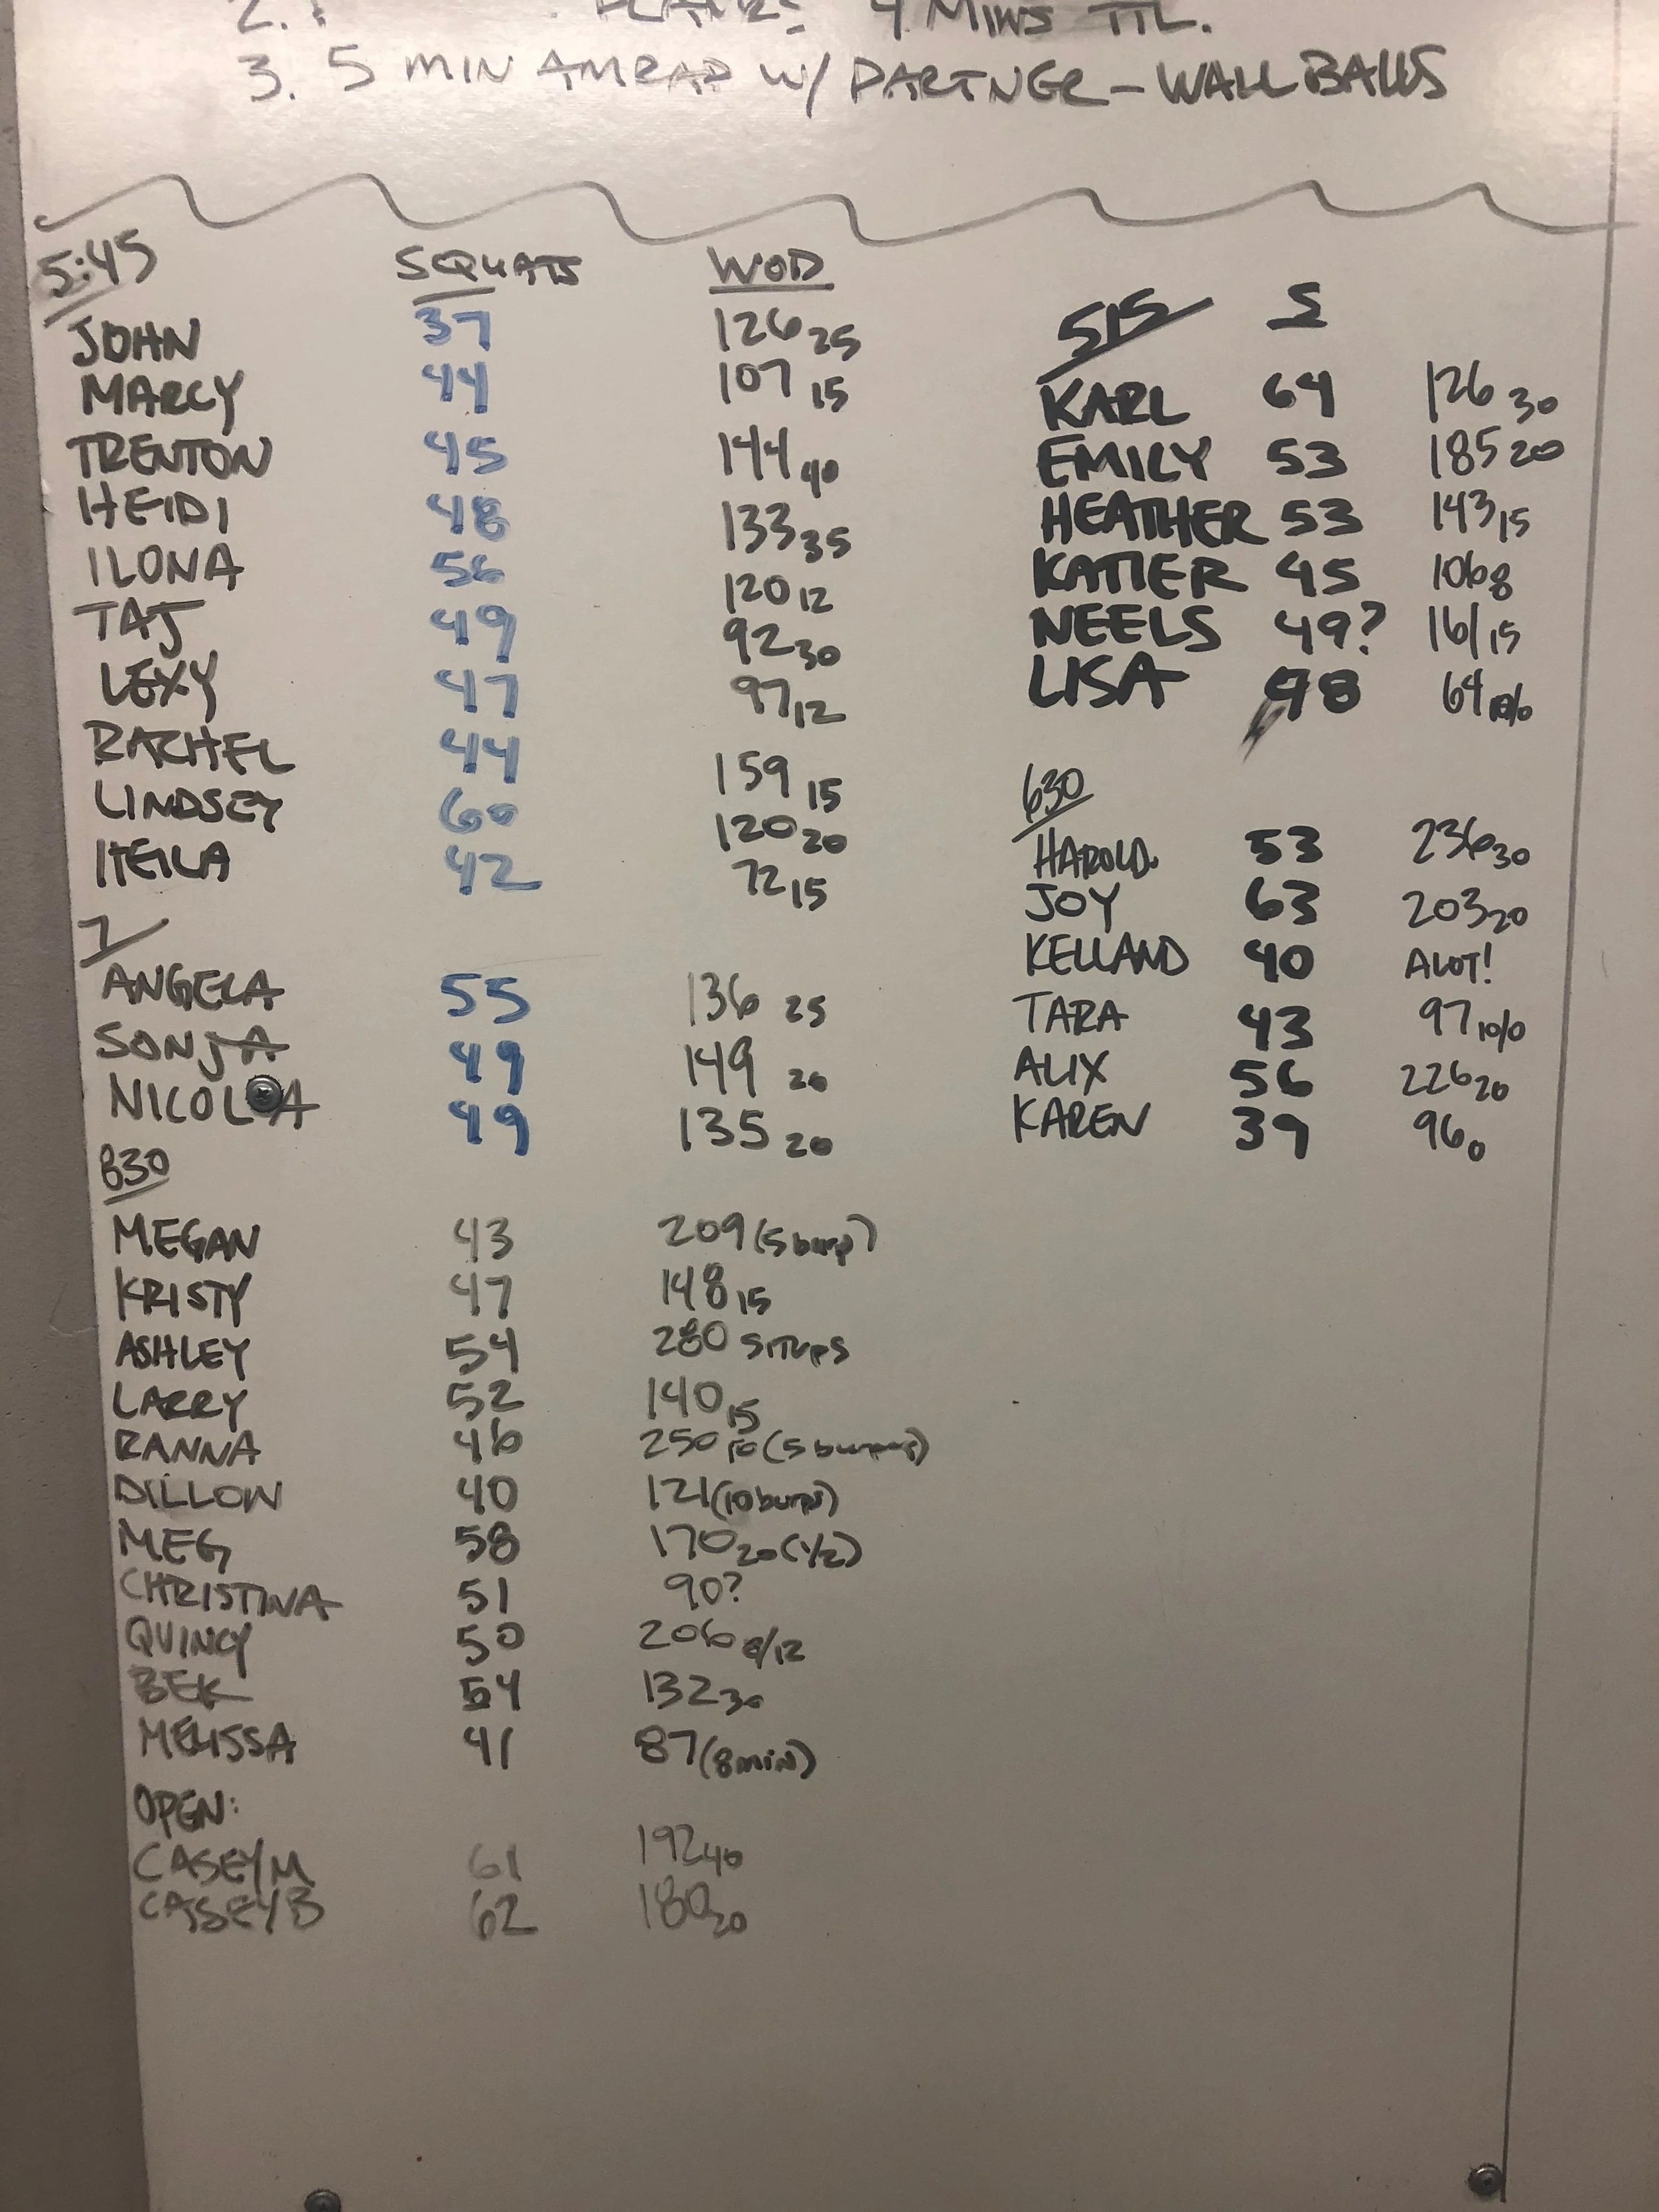 2.
4 MINS TTL.
3. 5 MIN AMRAP W/ PARTNER - WALL BALLS
5:45 SQUATS WOD
JOHN 37 126 25
MARCY 44 107 15
TRENTON 45 144 40
HEIDI 48 133 35
ILONA 56 120 12
TAJ 49 92 30
LEXY 47 97 12
RACHEL 44 159 15
LINDSEY 60 120 20
42 72 15
7
ANGELA 55 136 25
SONJA 49 149 20
NICOLA 49 135 20
830
MEGAN 43 209 (5 burp)
KRISTY 47 148 15
ASHLEY 54 280 SITUPS
LARRY 52 140 15
RANNA 46 250 10 (5 burpees)
DILLON 40 121 (10 burps)
MEG 58 170 20 (1/2)
CHRISTINA 51 90?
QUINCY 50 206 8/12
BEK 54 132 30
MELISSA 41 87 (8 MIN)
OPEN:
CASEY M 61 192 40
CASEY B 62 180 20
515 S
KARL 64 126 30
EMILY 53 185 20
HEATHER 53 143 15
KATIER 45 106 8
NEELS 49? 161 15
LISA 48 64 10/0
630
HAROLD. 53 236 30
JOY 63 203 20
KELLAND 40 ALOT!
TARA 43 97 10/0
ALIX 56 226 20
KAREN 39 96 0